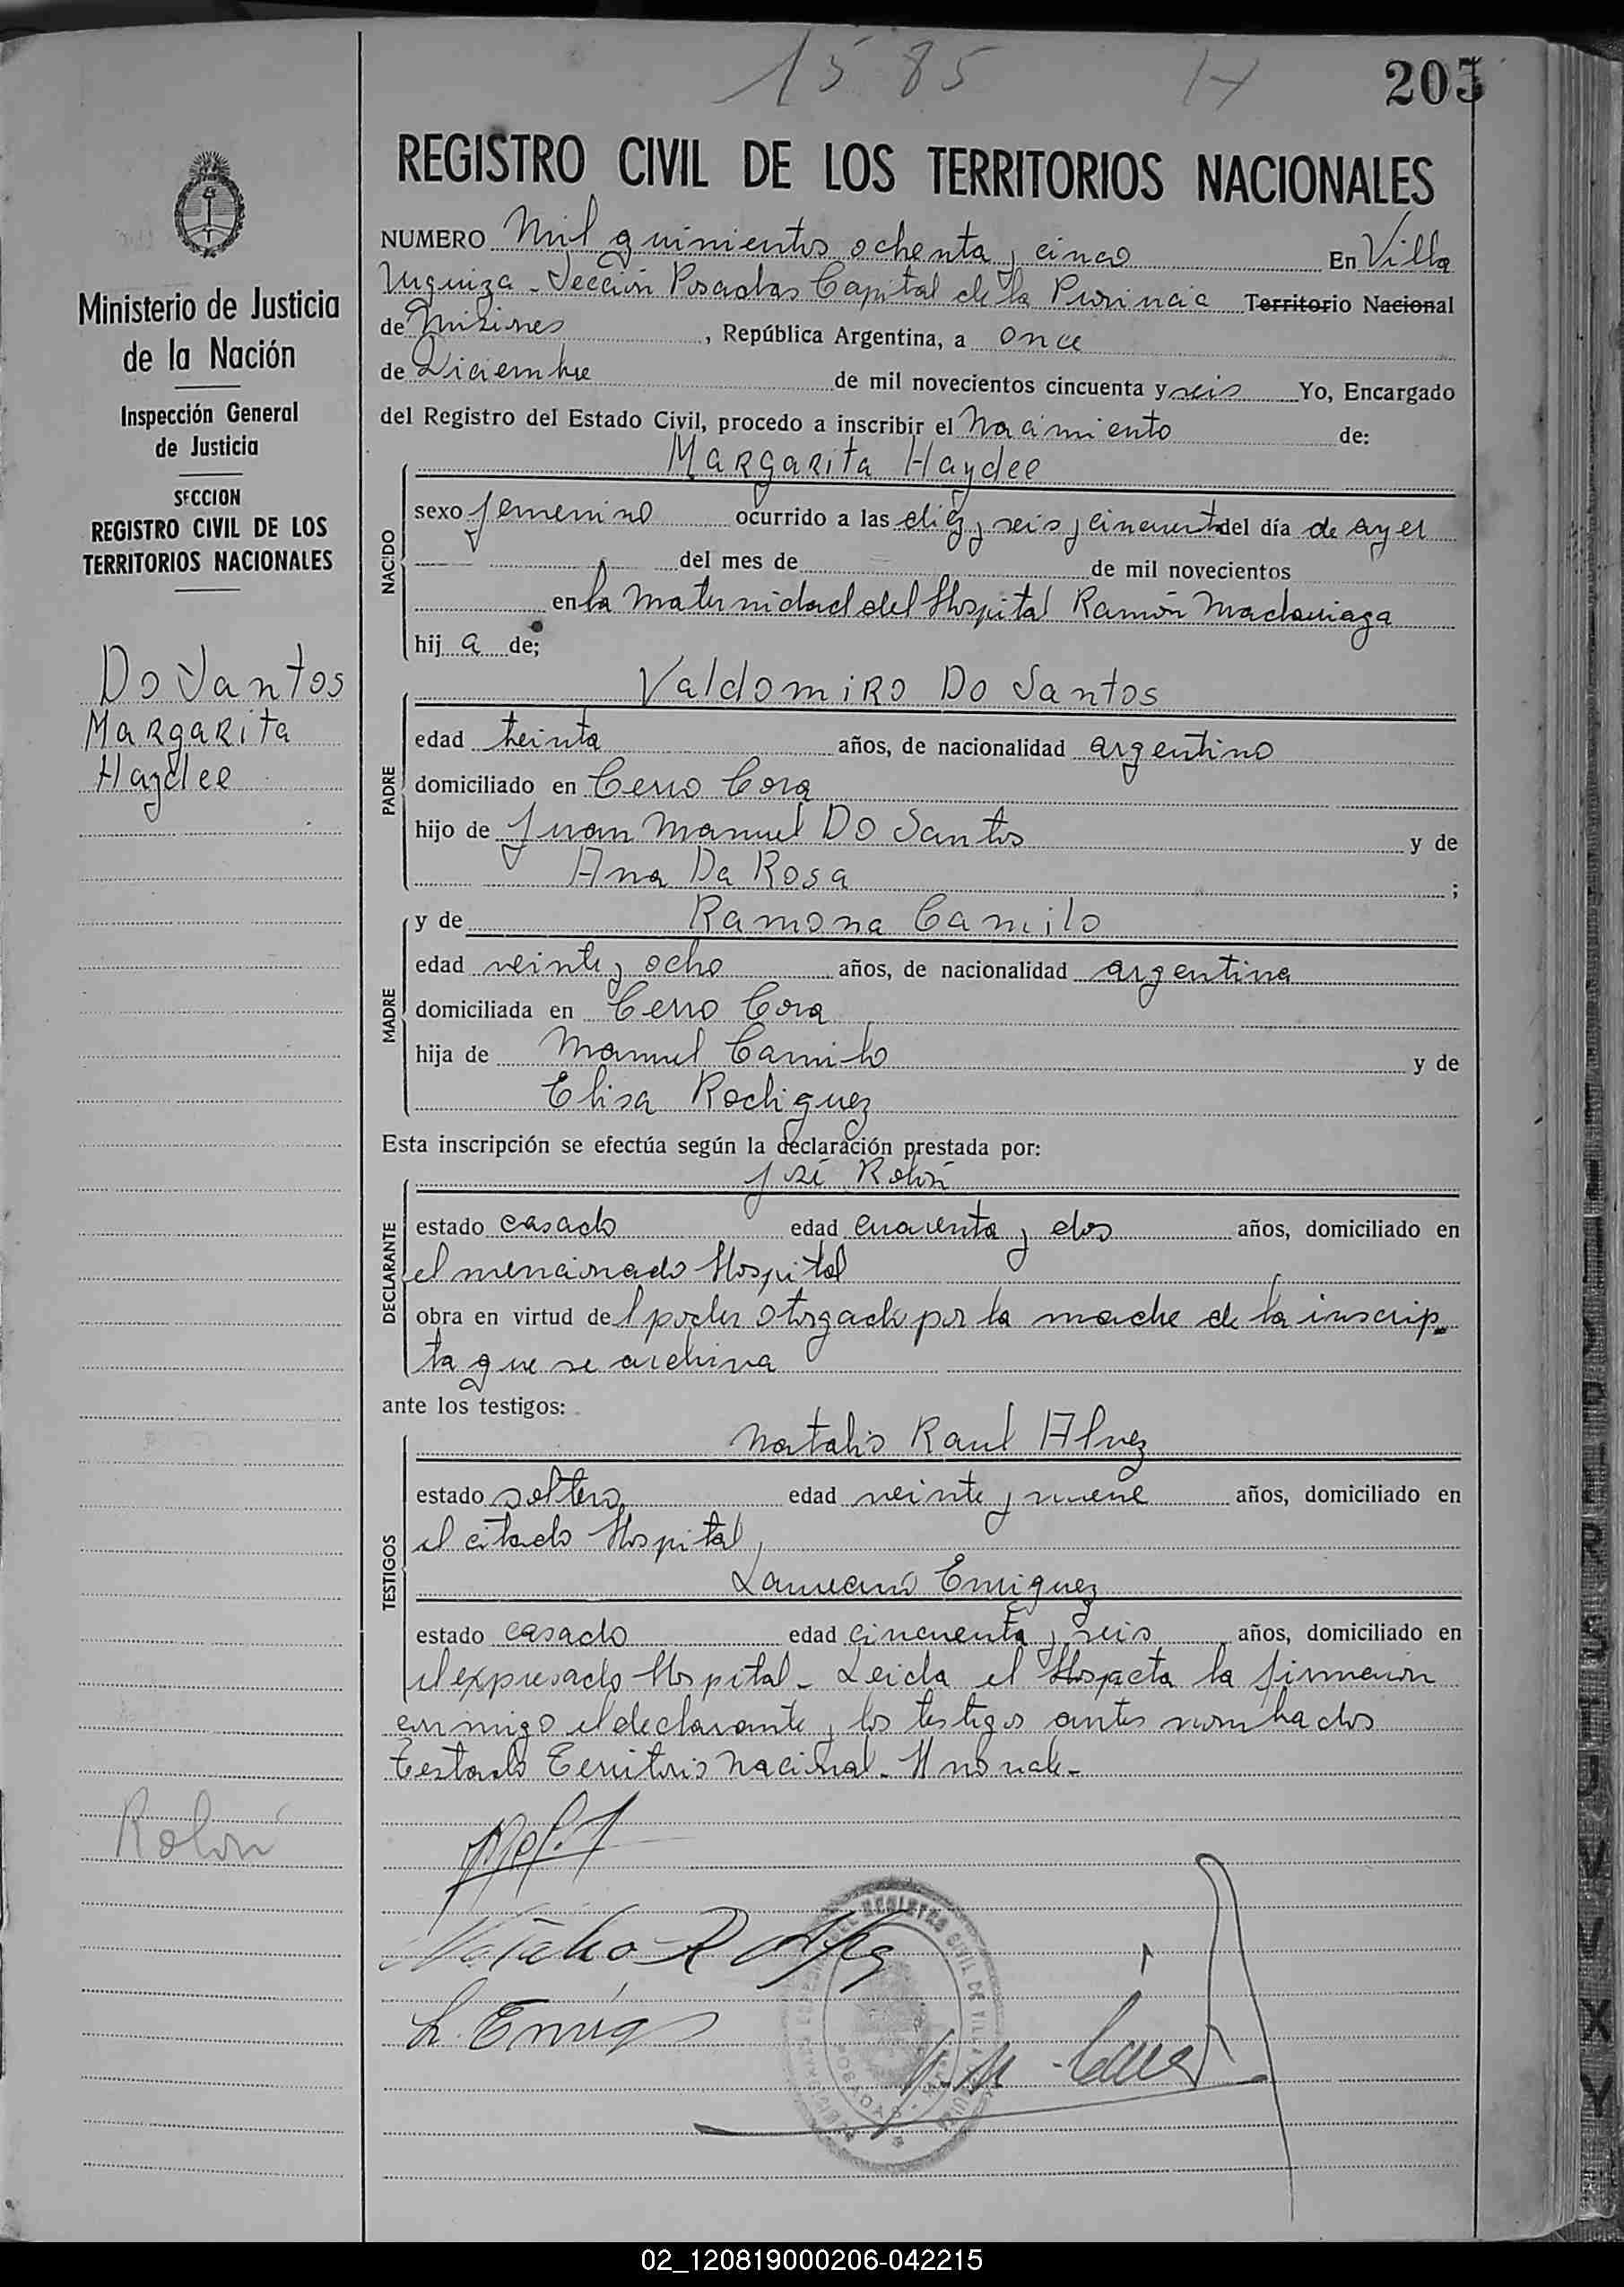 1585 H 203
REGISTRO CIVIL DE LOS TERRITORIOS NACIONALES
Ministerio de Justicia
de la Nación
Inspección General
de Justicia
SECCION
REGISTRO CIVIL DE LOS
TERRITORIOS NACIONALES
Do Santos
Margarita
Haydee
Rolón
NUMERO Mil quinientos ochenta y cinco En Villa
Urquiza - Sección Posadas Capital de la Provincia Territorio Nacional
de Misiones, República Argentina, a once
de Diciembre de mil novecientos cincuenta y seis Yo, Encargado
del Registro del Estado Civil, procedo a inscribir el Nacimiento de:
Margarita Haydee
NACIDO
sexo femenino ocurrido a las diez y seis y cincuenta del día de ayer
del mes de de mil novecientos
en la Maternidad del Hospital Ramón Madariaga
hij a de;
Valdomiro Do Santos
PADRE
edad treinta años, de nacionalidad argentino
domiciliado en Cerro Cora
hijo de Juan Manuel Do Santos y de
Ana Da Rosa ;
y de Ramona Camilo
MADRE
edad veinte y ocho años, de nacionalidad argentina
domiciliada en Cerro Cora
hija de Manuel Camilo y de
Elisa Rodriguez
Esta inscripción se efectúa según la declaración prestada por:
José Rolón
DECLARANTE
estado casado edad cuarenta y dos años, domiciliado en
el mencionado Hospital
obra en virtud del poder otorgado por la madre de la inscrip-
ta que se archiva
ante los testigos:
Natalio Raul Alvez
TESTIGOS
estado soltero edad veinte y nueve años, domiciliado en
el citado Hospital
Laureano Enriquez
estado casado edad cincuenta y seis años, domiciliado en
el expresado Hospital - Leida el Hospacta la firmaron
conmigo el declarante y los testigos antes nombrados
Testado Territorio Nacional - H no vale -
Natalio R Alvez
L. Enriq
02_120819000206-042215